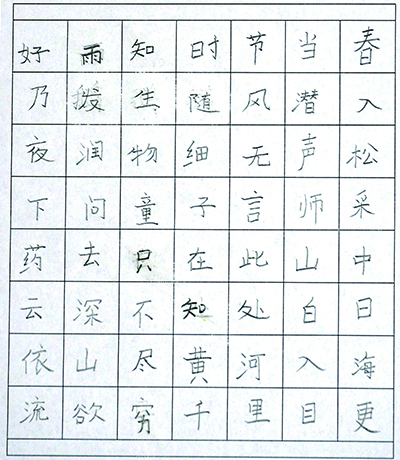 好雨知时节当春
乃拨生随风潜入
夜润物细无声松
下问童子言师采
药去只在此山中
云深不知处白日
依山尽黄河入海
流欲穷千里目更